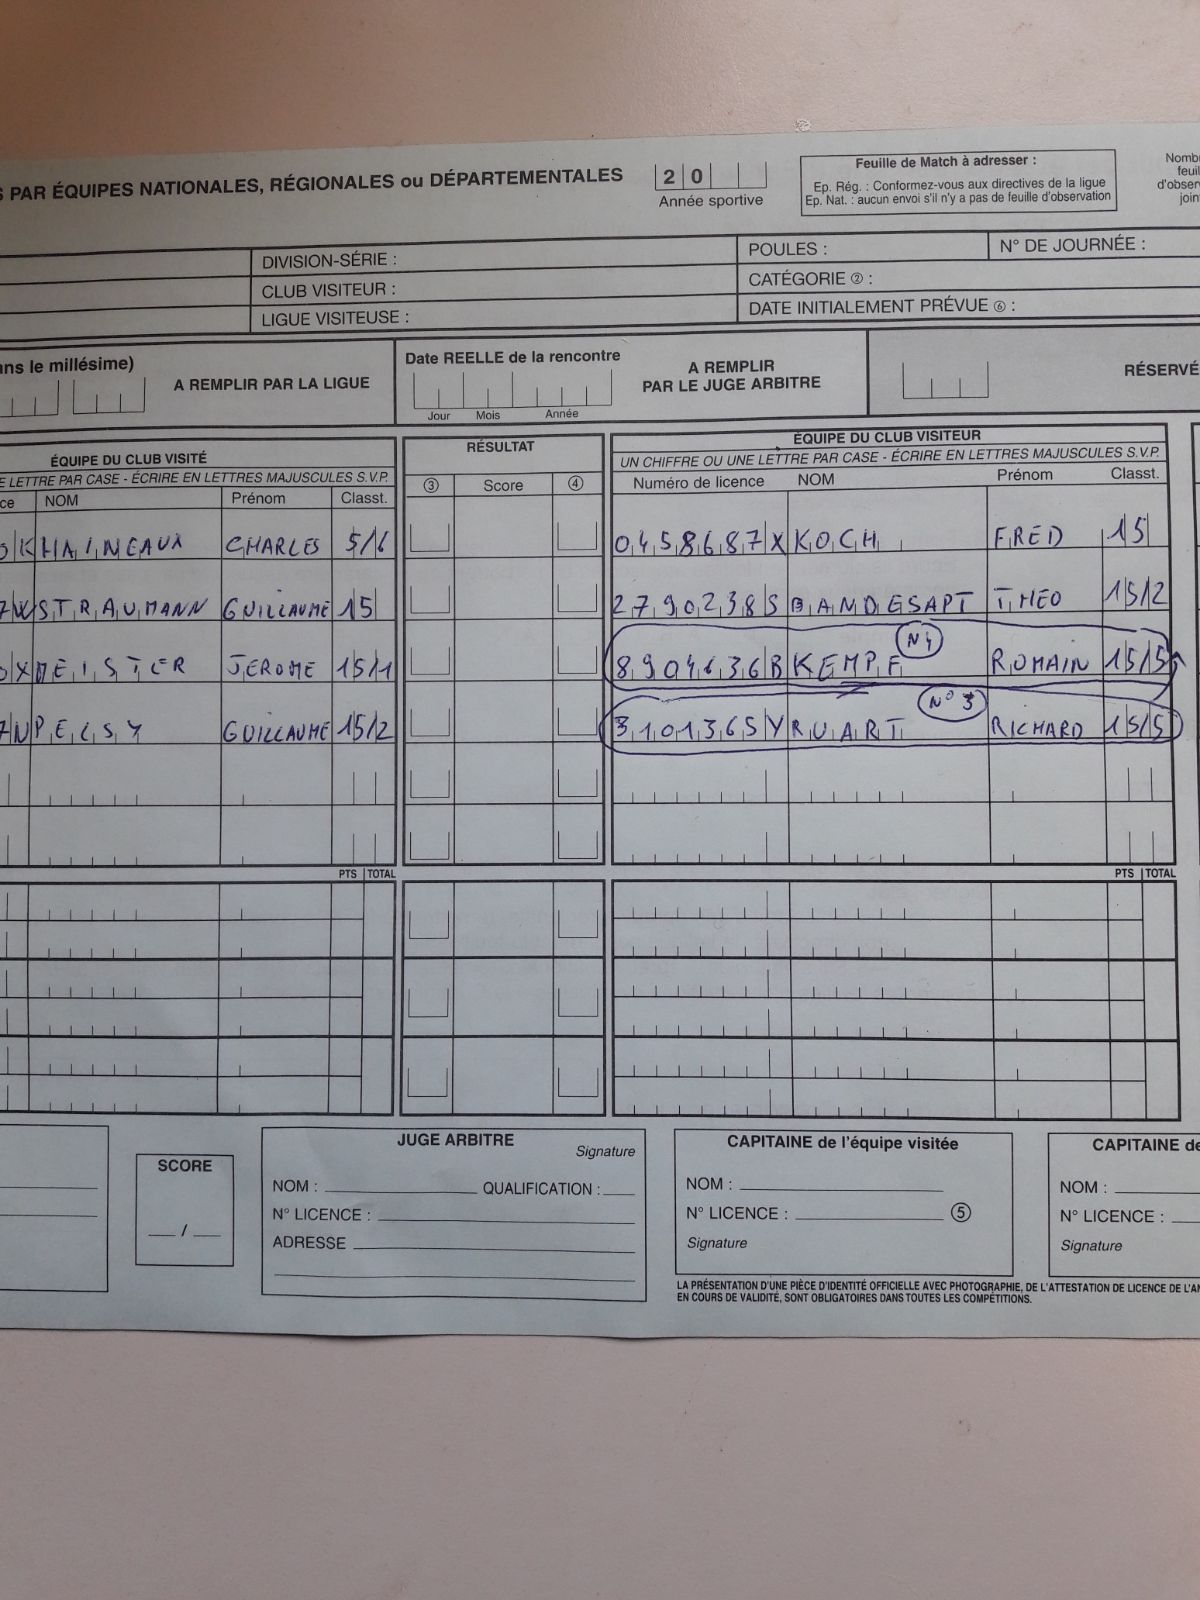 S PAR ÉQUIPES NATIONALES, RÉGIONALES ou DÉPARTEMENTALES
2 0
Année sportive
Feuille de Match à adresser :
Ep. Rég. : Conformez-vous aux directives de la ligue
Ep. Nat. : aucun envoi s'il n'y a pas de feuille d'observation
Nomb
feuil
d'obser
join
DIVISION-SÉRIE :
POULES :
N° DE JOURNÉE :
CLUB VISITEUR :
CATÉGORIE ② :
LIGUE VISITEUSE :
DATE INITIALEMENT PRÉVUE ⑥ :
ans le millésime)
A REMPLIR PAR LA LIGUE
Date REELLE de la rencontre
Jour Mois Année
A REMPLIR
PAR LE JUGE ARBITRE
RÉSERVÉ
ÉQUIPE DU CLUB VISITÉ
E LETTRE PAR CASE - ÉCRIRE EN LETTRES MAJUSCULES S.V.P.
ce NOM Prénom Classt.
K HAINEAUX CHARLES 5/6
7W STRAUMANN GUILLAUME 15
X MEISTER JEROME 15/1
7N PELSY GUILLAUME 15/2
RÉSULTAT
③ Score ④
ÉQUIPE DU CLUB VISITEUR
UN CHIFFRE OU UNE LETTRE PAR CASE - ÉCRIRE EN LETTRES MAJUSCULES S.V.P.
Numéro de licence NOM Prénom Classt.
0458687X KOCH FRED 15
2790238S BANDESAPT THEO 15/2
N4
8904636B KEMPF ROMAIN 15/5
N°3
3101365Y RUART RICHARD 15/5
PTS TOTAL
PTS TOTAL
SCORE
/
JUGE ARBITRE
Signature
NOM : QUALIFICATION :
N° LICENCE :
ADRESSE
CAPITAINE de l'équipe visitée
NOM :
N° LICENCE : ⑤
Signature
CAPITAINE de
NOM :
N° LICENCE :
Signature
LA PRÉSENTATION D'UNE PIÈCE D'IDENTITÉ OFFICIELLE AVEC PHOTOGRAPHIE, DE L'ATTESTATION DE LICENCE DE L'AN
EN COURS DE VALIDITÉ, SONT OBLIGATOIRES DANS TOUTES LES COMPÉTITIONS.